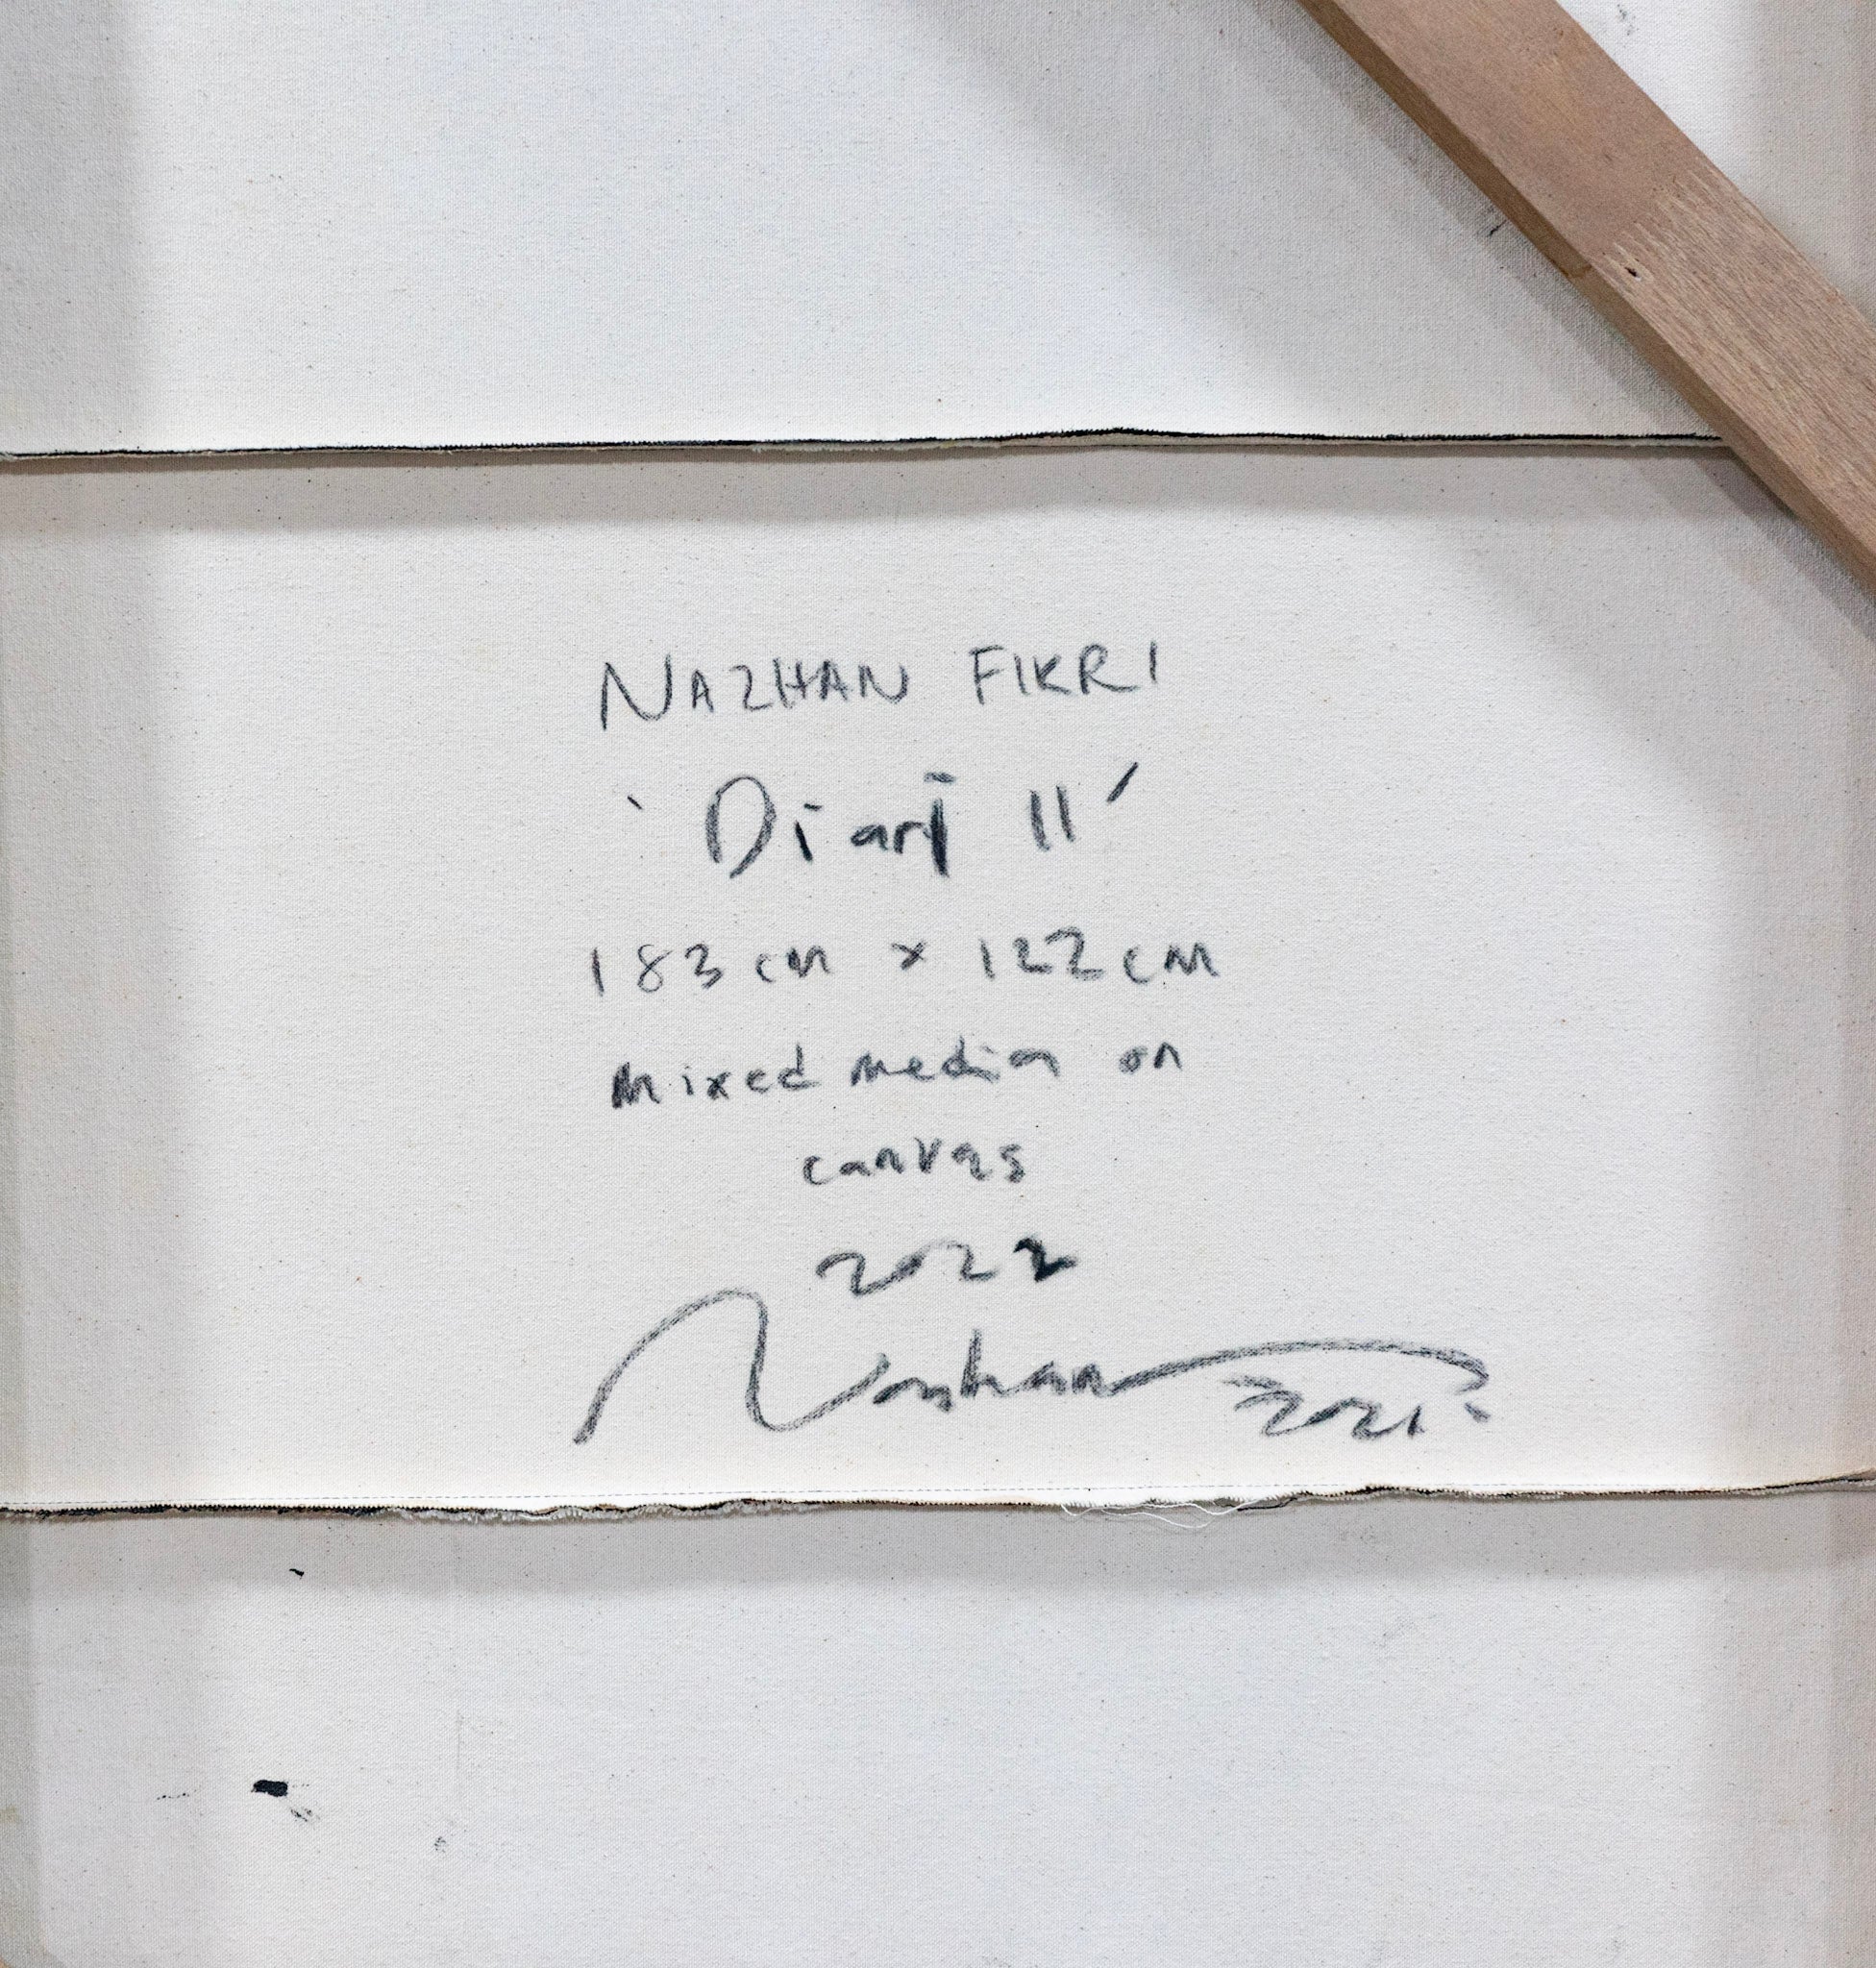 NAZHAN FIKRI
'Diari II'
183 cm x 122 cm
Mixed media on
canvas
2022
Nazhan
2021